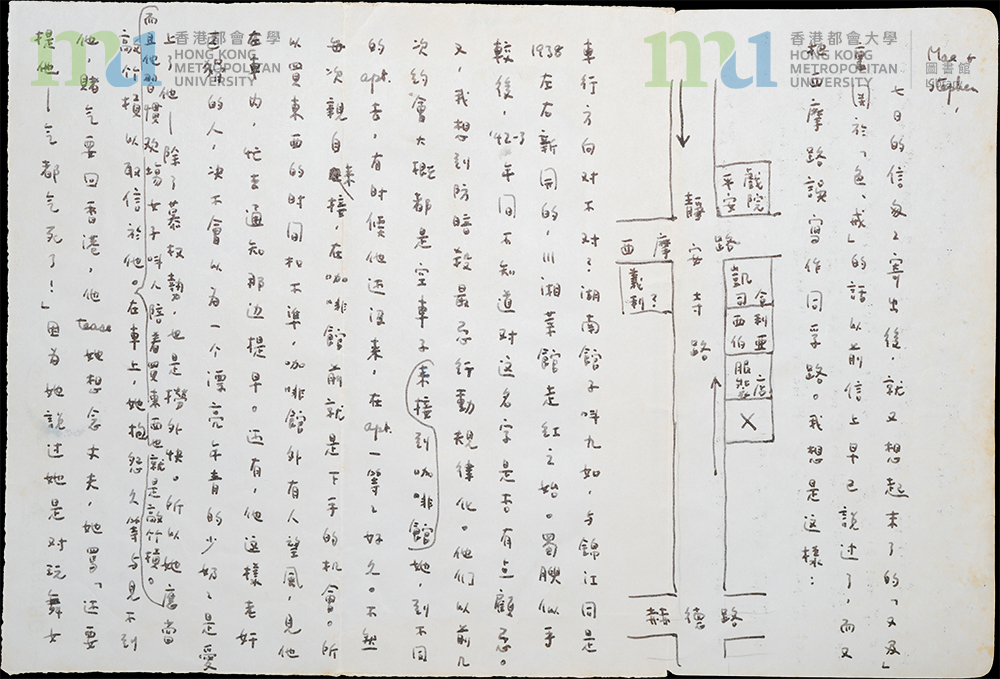 香港都會大學
HONG KONG
METROPOLITAN
UNIVERSITY
香港都會大學
HONG KONG
METROPOLITAN
UNIVERSITY
圖書館
Mae &
Stephen,
七日的信匆匆寄出後,就又想起末了的「又及」
里関於「色,戒」的話以前信上早已說过了,而又
把西摩路誤寫作同孚路。我想是這樣:
平安戲院
靜安寺路
西摩路
凱司令
西伯利亞
服裝店
X
義利?
赫德路
車行方向对不对?湖南館子叫九如,与錦江同是
1938左右新開的,川湘菜館走紅之始。蜀腴似乎
較後,'42-3年间不知道对这名字是否有点顧忌。
又,我想到防暗殺最忌行動規律化。他们以前几
次約會大概都是空車子来接到咖啡館她到不同
的apt.去,有时候他还没来,在apt.一等等好久。不然
每次親自来接,在咖啡館前就是下手的机會。所
以買東西的时间扣不準,咖啡館外有人望風,見他
在車內,忙去通知那边提早。还有,他这樣老奸
巨猾的人,决不會以为一个漂亮年青的少奶奶是愛
上了他—除了慕权勢,也是撈外快。所以她應当
而且他習慣欢場女子叫人陪着買東西也就是敲竹槓。
敲竹槓以取信於他。在車上,她抱怨久等与見不到
他,賭气要回香港,他tease她想念丈夫,她罵「还要
提他—气都气死了!」因为她說过她是对玩舞女